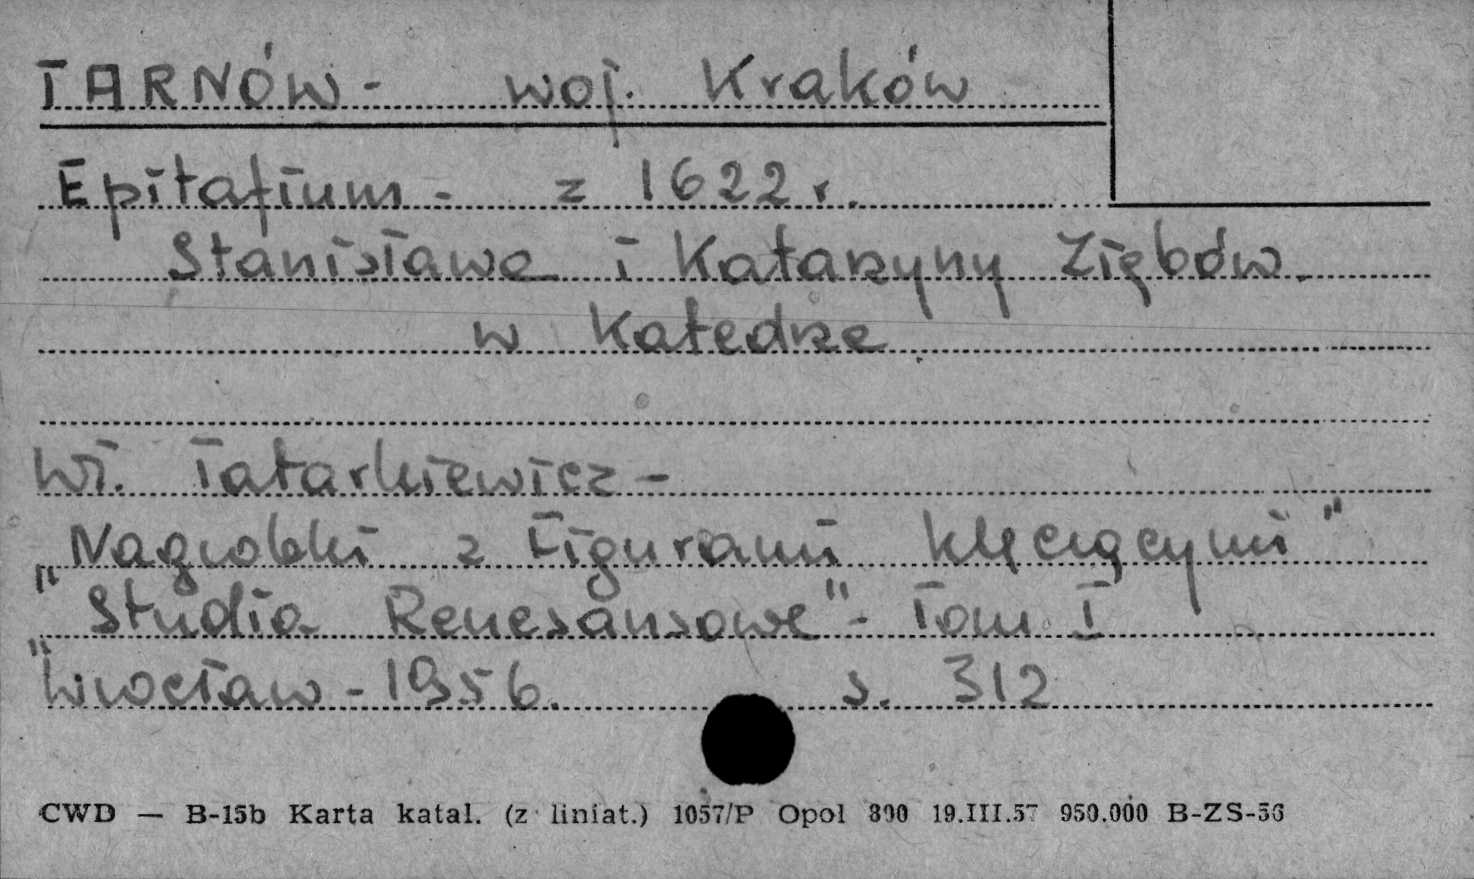 TARNÓW - woj. Kraków
Epitafium - z 1622 r.
Stanisława i Katarzyny Ziębów.
w Katedrze
Wł. Tatarkiewicz -
"Nagrobki z Figurami klęczącymi"
"Studia Renesansowe" - Tom I
Wrocław - 1956. s. 312
CWD — B-15b Karta katal. (z liniat.) 1057/P Opol 800 19.III.57 950.000 B-ZS-56